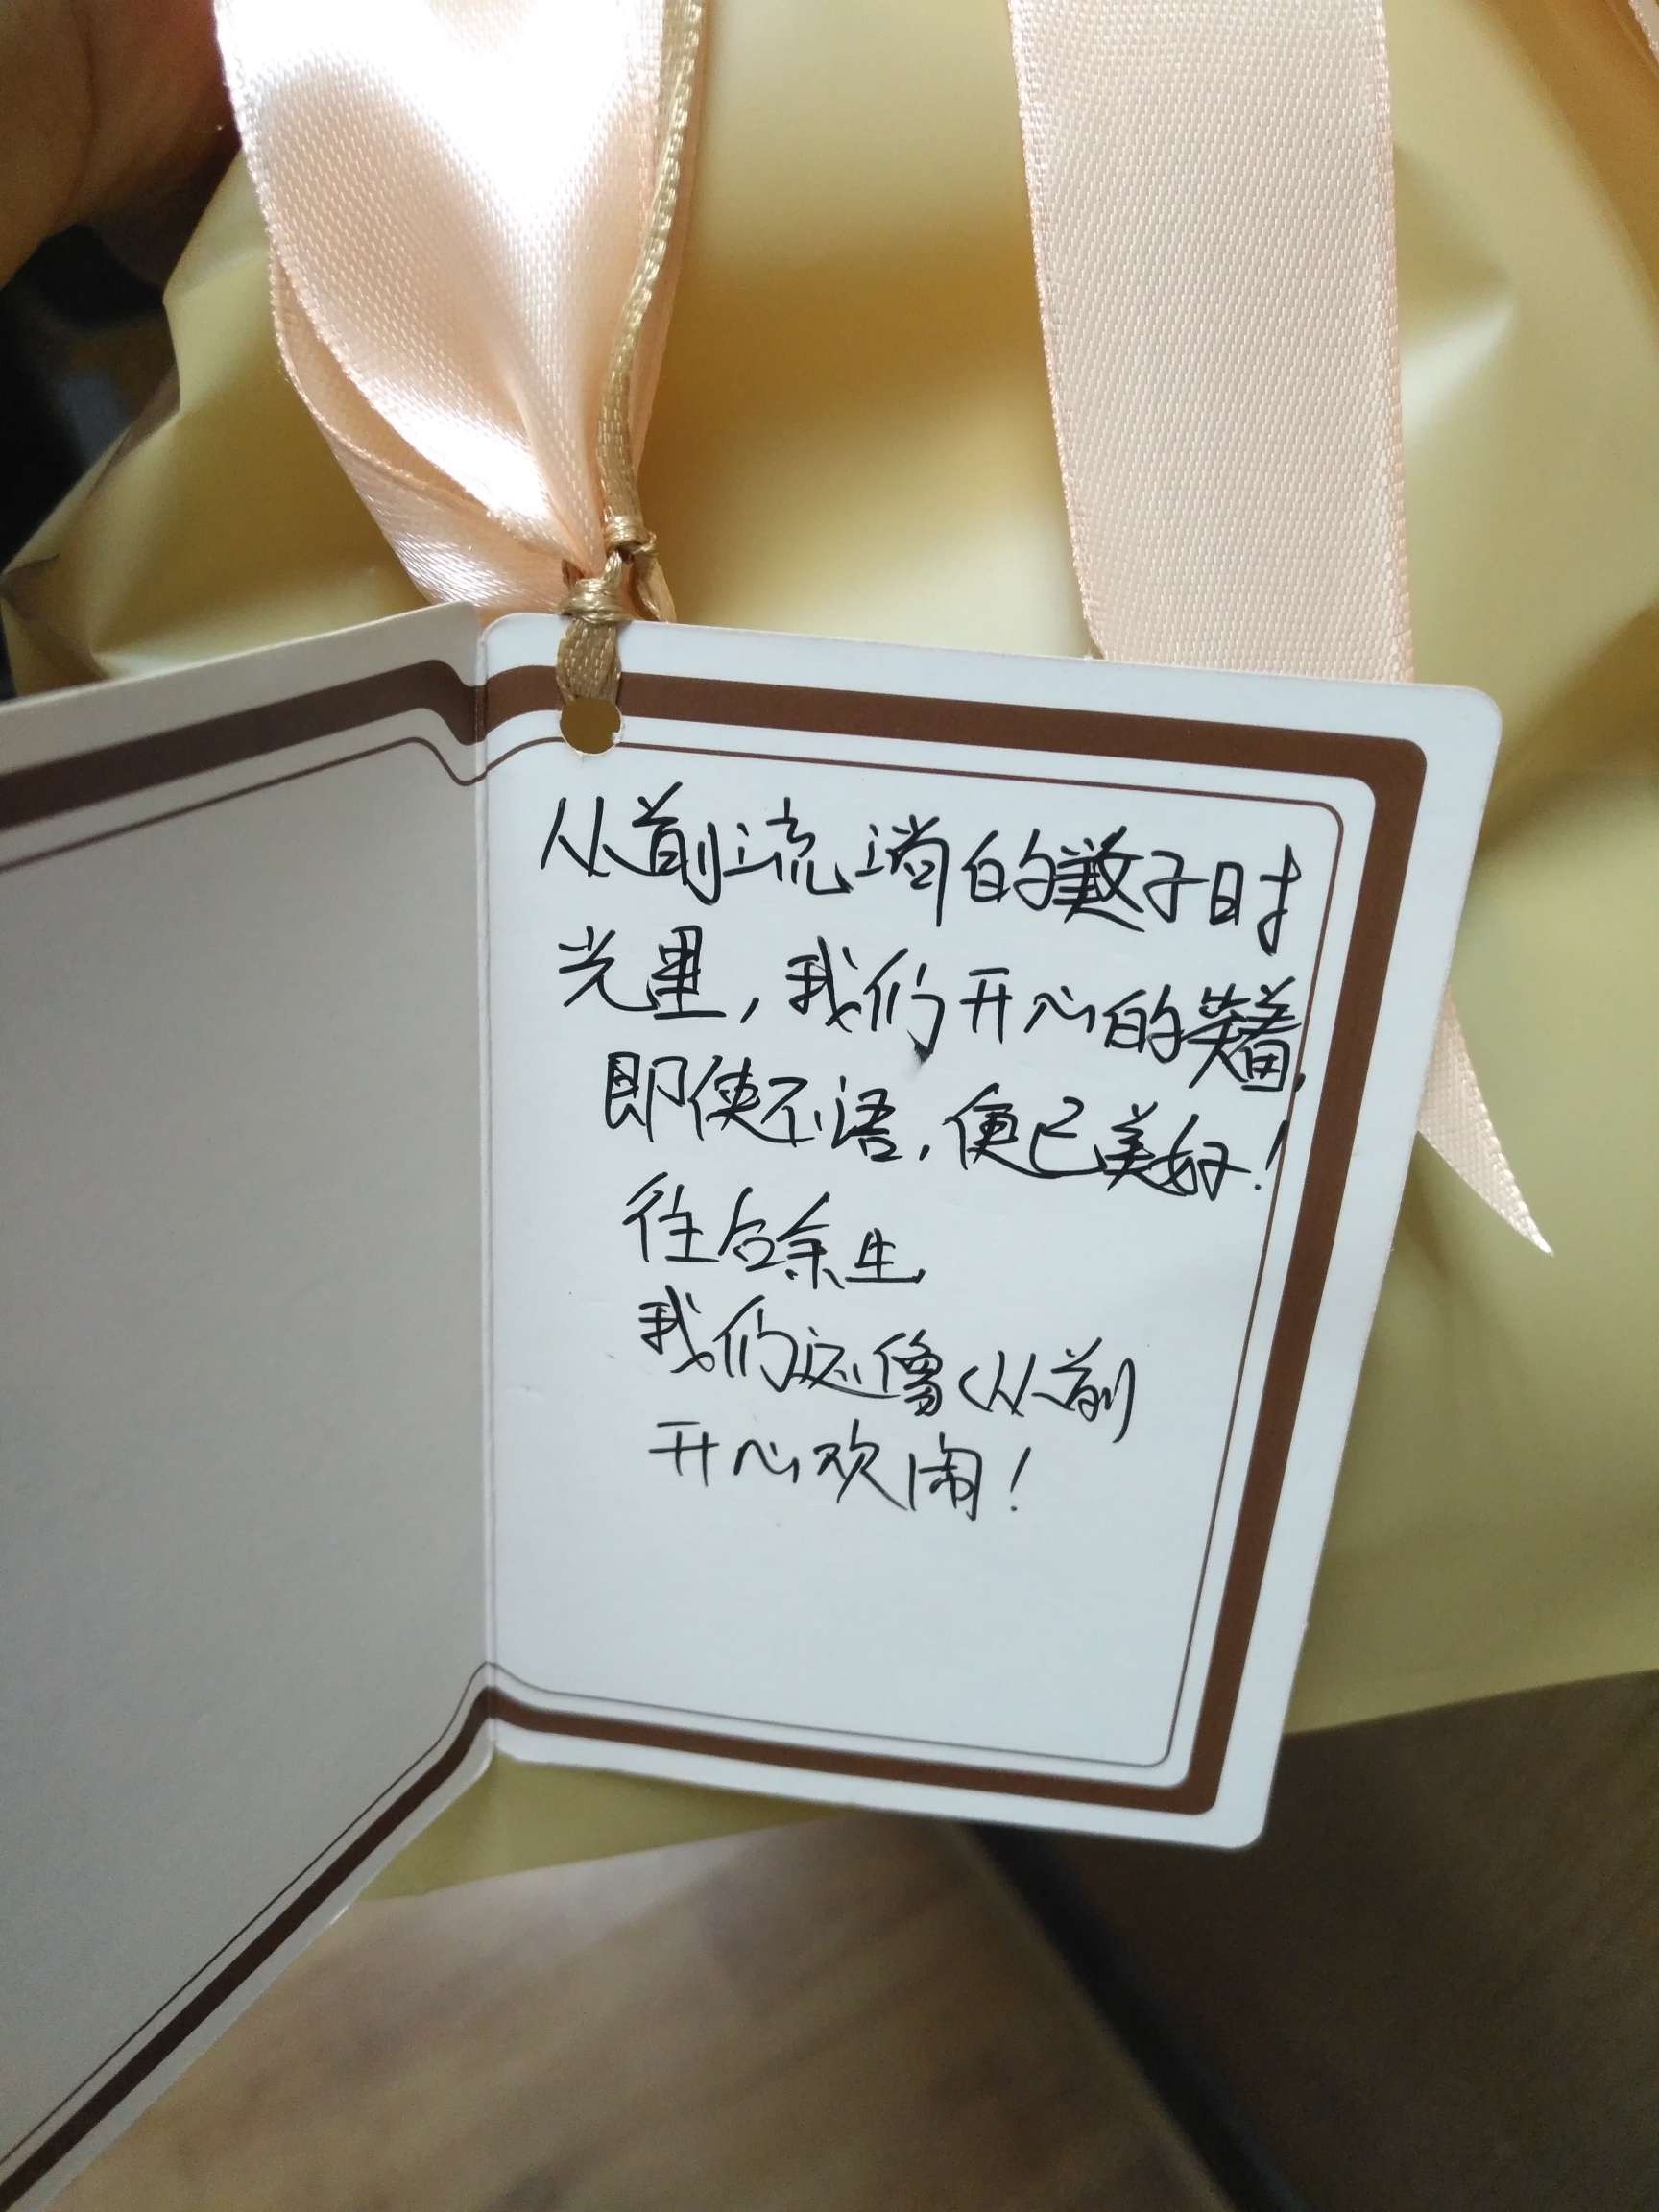 从前流淌的数子时
光里，我们开心的笑着，
即使不语，便已美好！
往后余生
我们还像从前
开心欢闹！